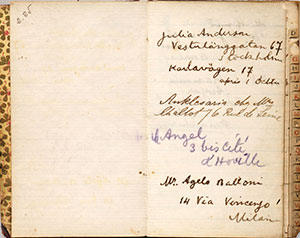 2.85
Julia Anderson
Vesterlånggatan 67
Stockholm
Karlavägen 17
après 1 Octbr
Anklesaria chez Mme
76 Rue de Seine
Angel
3 bis Cité
d'Hoville
Mr. Agelo Baltoni
14 Via Vincenzo
Milan